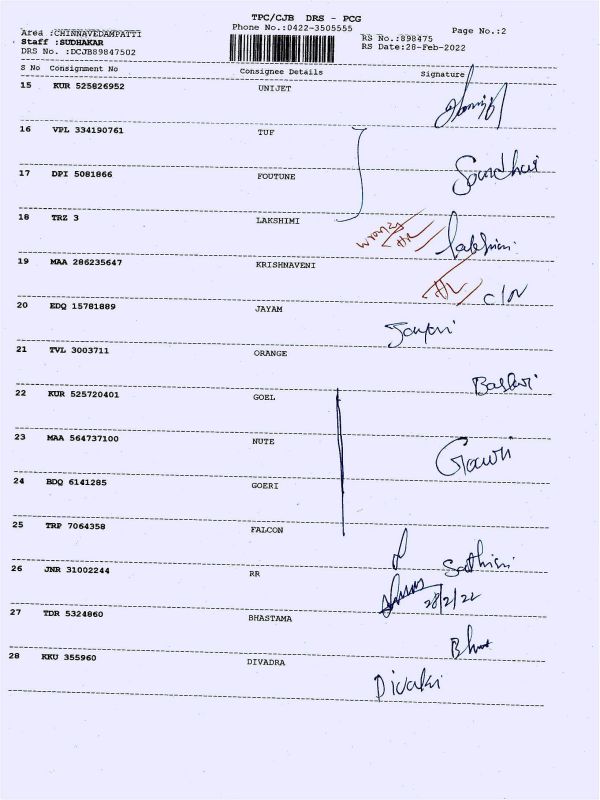 TPC/CJB DRS - PCG
Phone No.:0422-3505555
Page No.:2
Area :CHINNAVEDAMPATTI
Staff :SUDHAKAR
DRS No. :DCJB89847502
RS No.:898475
RS Date:28-Feb-2022
S No Consignment No Consignee Details Signature
15 KUR 525826952 UNIJET
16 VPL 334190761 TUF
17 DPI 5081866 FOUTUNE
Soundhari
18 TRZ 3 LAKSHIMI
wrong
Lakhimi
19 MAA 286235647 KRISHNAVENI
C/N
20 EDQ 15781889 JAYAM
21 TVL 3003711 ORANGE
22 KUR 525720401 GOEL
23 MAA 564737100 NUTE
Gowri
24 BDQ 6141285 GOERI
25 TRP 7064358 FALCON
Sathini
26 JNR 31002244 RR
28/2/22
27 TDR 5324860 BHASTAMA
28 KKU 355960 DIVADRA
Divaki